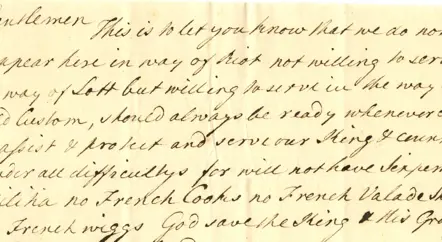 entlemen This is to let you know that we do not
apear here in way of Riot not willing to ser
way of Lott but willing to serve in the way
d Custom, should always be ready whenever
assist & protect and serve our King & coun
nder all difficultys for will not have Sixpen
ilitia no French Cooks no French Valade
French wiggs God save the King & His Gra